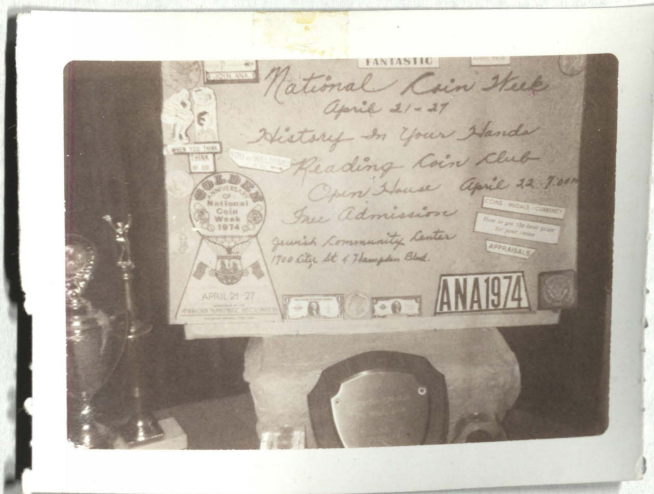 JOIN ANA
FANTASTIC
National Coin Week
April 21-27
History In Your Hands
WHEN YOU THINK
THINK
Reading Coin Club
Open House April 22 7:00PM
Free Admission
Jewish Community Center
1700 City Line St & Hampden Blvd.
GOLDEN
ANNIVERSARY
OF
National
Coin
Week
1974
APRIL 21-27
AMERICAN NUMISMATIC ASSOCIATION
COINS - MEDALS - CURRENCY
How to get the best price
for your coins
APPRAISALS
ANA1974